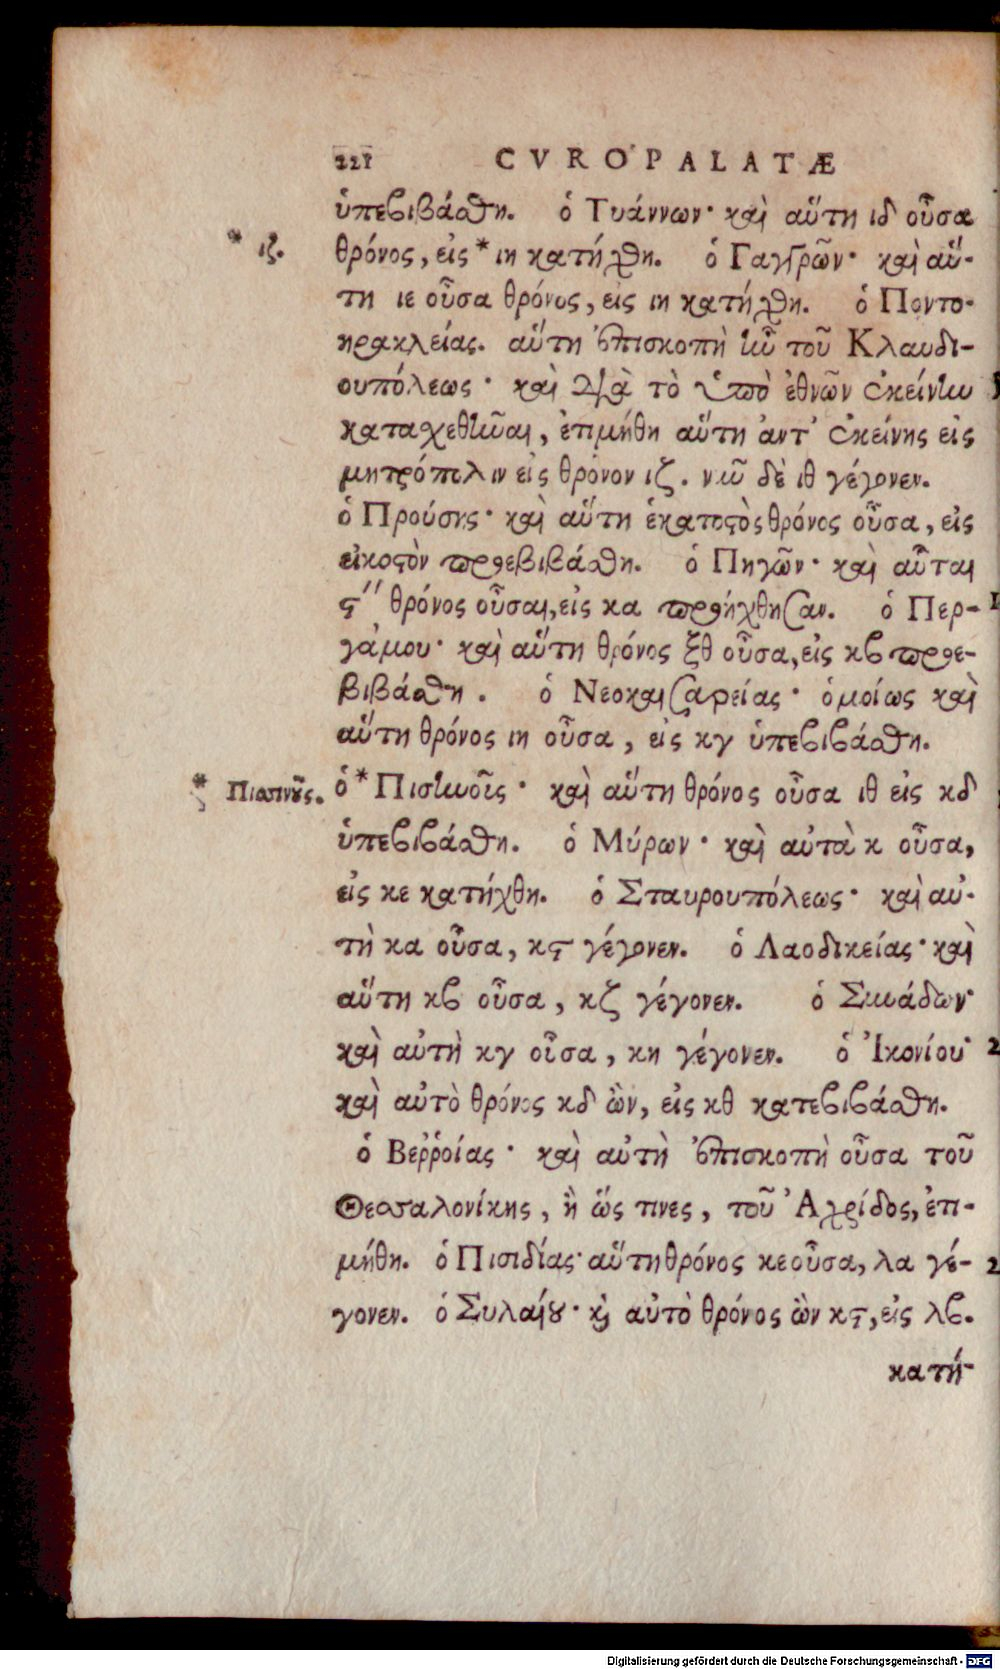 221 CVROPALATÆ
ὑπεβιβάσθη. ὁ Τυάννων· καὶ αὕτη ιδ οὖσα
* ιζ.
θρόνος, εἰς * ιη κατήχθη. ὁ Γαγγρῶν· καὶ αὕ-
τη ιε οὖσα θρόνος, εἰς ιη κατήχθη. ὁ Ποντο-
ηρακλείας. αὕτη ἐπισκοπὴ ἦν τοῦ Κλαυδι-
ουπόλεως· καὶ διὰ τὸ ὑπὸ ἐθνῶν ἐκείνην
κατασχεθῆναι, ἐτιμήθη αὕτη ἀντ' ἐκείνης εἰς
μητρόπολιν εἰς θρόνον ιζ. νῦν δὲ ιθ γέγονεν.
ὁ Προύσης· καὶ αὕτη ἑκατοστὸς θρόνος οὖσα, εἰς
εἰκοστὸν προεβιβάσθη. ὁ Πηγῶν· καὶ αὗται
ϛ'' θρόνος οὖσαι, εἰς κα προήχθησαν. ὁ Περ-
γάμου· καὶ αὕτη θρόνος ξθ οὖσα, εἰς κβ προε-
βιβάσθη. ὁ Νεοκαισαρείας· ὁμοίως καὶ
αὕτη θρόνος ιη οὖσα, εἰς κγ ὑπεβιβάσθη.
* Πισινοῦς.
ὁ * Πισηνοῖς· καὶ αὕτη θρόνος οὖσα ιθ εἰς κδ
ὑπεβιβάσθη. ὁ Μύρων· καὶ αὐτὰ κ οὖσα,
εἰς κε κατήχθη. ὁ Σταυρουπόλεως· καὶ αὐ-
τὴ κα οὖσα, κϛ γέγονεν. ὁ Λαοδικείας· καὶ
αὕτη κβ οὖσα, κζ γέγονεν. ὁ Συνάδων·
καὶ αὐτὴ κγ οὖσα, κη γέγονεν. ὁ Ἰκονίου·
καὶ αὐτὸ θρόνος κδ ὢν, εἰς κθ κατεβιβάσθη.
ὁ Βεῤῥοίας· καὶ αὐτὴ ἐπισκοπὴ οὖσα τοῦ
Θεσσαλονίκης, ἢ ὥς τινες, τοῦ Ἀχρίδος, ἐτι-
μήθη. ὁ Πισιδίας· αὕτη θρόνος κε οὖσα, λα γέ-
γονεν. ὁ Συλαίου· καὶ αὐτὸ θρόνος ὢν κϛ, εἰς λβ.
κατή-
Digitalisierung gefördert durch die Deutsche Forschungsgemeinschaft - DFG